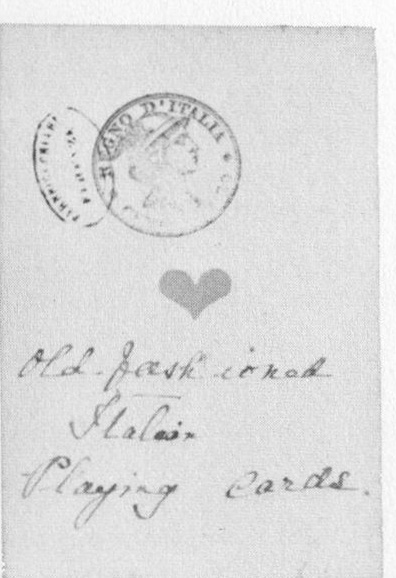 REGNO D'ITALIA
Old fashioned
Italian
Playing cards.